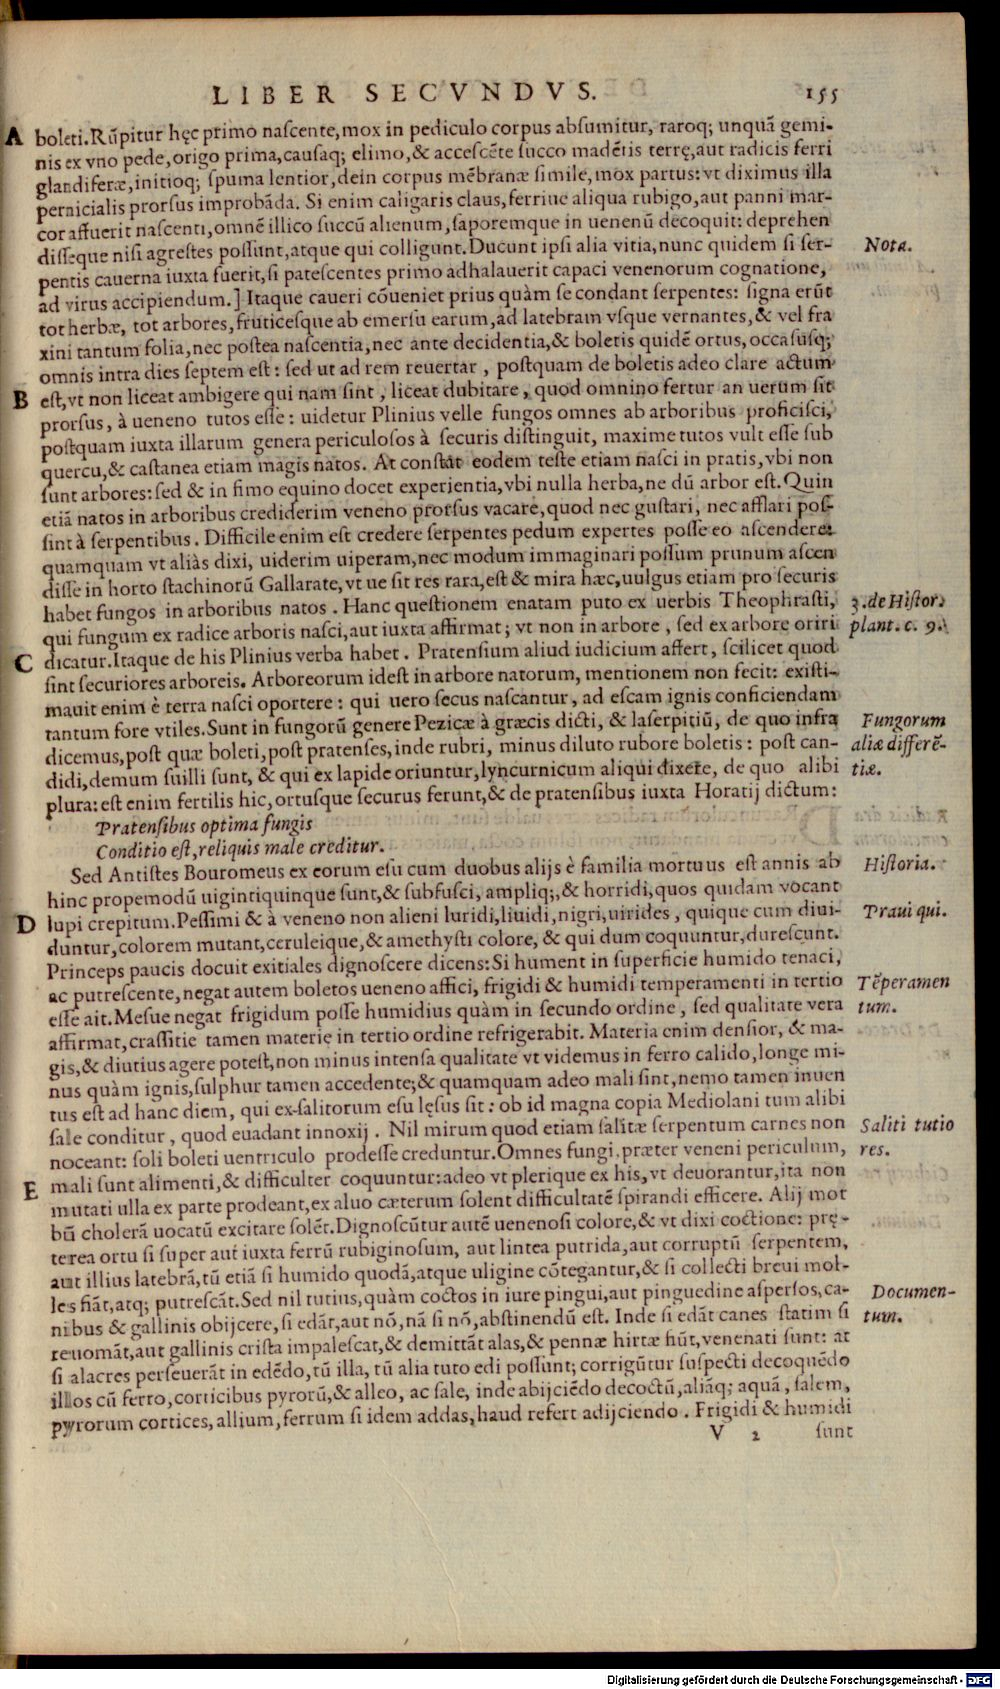 LIBER SECVNDVS. 155
A boleti.Rũpitur hęc primo nascente,mox in pediculo corpus absumitur, raroq; unquã gemi-
nis ex vno pede,origo prima,causaq; elimo,& accescẽte succo madẽtis terrę,aut radicis ferri
glandiferæ,initioq; spuma lentior,dein corpus mẽbranæ simile,mox partus: vt diximus illa
pernicialis prorsus improbãda. Si enim caligaris claus,ferriue aliqua rubigo,aut panni mar-
cor affuerit nascenti,omnẽ illico succũ alienum,saporemque in uenenũ decoquit: deprehen
disseque nisi agrestes possunt,atque qui colligunt.Ducunt ipsi alia vitia,nunc quidem si ser-
Nota.
pentis cauerna iuxta fuerit,si patescentes primo adhalauerit capaci venenorum cognatione,
ad virus accipiendum.] Itaque caueri cõueniet prius quàm se condant serpentes: signa erũt
tot herbæ, tot arbores,fruticesque ab emersu earum,ad latebram vsque vernantes,& vel fra
xini tantum folia,nec postea nascentia,nec ante decidentia,& boletis quidẽ ortus,occasusq;
omnis intra dies septem est: sed ut ad rem reuertar , postquam de boletis adeo clare actum
B est,vt non liceat ambigere qui nam sint , liceat dubitare, quod omnino fertur an uerum sit
prorsus, à ueneno tutos esse: uidetur Plinius velle fungos omnes ab arboribus proficisci,
postquam iuxta illarum genera periculosos à securis distinguit, maxime tutos vult esse sub
quercu,& castanea etiam magis natos. At constãt eodem teste etiam nasci in pratis,vbi non
sunt arbores:sed & in fimo equino docet experientia,vbi nulla herba,ne dũ arbor est.Quin
etiã natos in arboribus crediderim veneno prorsus vacare,quod nec gustari, nec afflari pos-
sint à serpentibus. Difficile enim est credere serpentes pedum expertes posse eo ascendere:
quamquam vt aliàs dixi, uiderim uiperam,nec modum immaginari possum prunum ascen
disse in horto stachinorũ Gallarate,vt ue sit res rara,est & mira hæc,uulgus etiam pro securis
habet fungos in arboribus natos . Hanc questionem enatam puto ex uerbis Theophrasti,
3.de Histor.
qui fungum ex radice arboris nasci,aut iuxta affirmat; vt non in arbore , sed ex arbore oriri
plant. c. 9.
C dicatur.Itaque de his Plinius verba habet . Pratensium aliud iudicium affert, scilicet quod
sint securiores arboreis. Arboreorum idest in arbore natorum, mentionem non fecit: existi-
mauit enim è terra nasci oportere : qui uero secus nascantur , ad escam ignis conficiendam
tantum fore vtiles.Sunt in fungorũ genere Pezicæ à græcis dicti, & laserpitiũ, de quo infra
Fungorum
dicemus,post quæ boleti,post pratenses,inde rubri, minus diluto rubore boletis : post can-
aliæ differẽ-
didi,demum suilli sunt, & qui ex lapide oriuntur,lyncurnicum aliqui dixere, de quo alibi
tiæ.
plura: est enim fertilis hic,ortusque securus ferunt,& de pratensibus iuxta Horatij dictum:
Pratensibus optima fungis
Conditio est,reliquis male creditur.
Sed Antistes Bouromeus ex eorum esu cum duobus alijs è familia mortuus est annis ab
Historia.
hinc propemodũ uigintiquinque sunt,& subfusci, ampliq;,& horridi,quos quidam vocant
D lupi crepitum.Pessimi & à veneno non alieni luridi,liuidi,nigri,uirides , quique cum diui-
Praui qui.
duntur,colorem mutant,ceruleique,& amethysti colore, & qui dum coquuntur,durescunt.
Princeps paucis docuit exitiales dignoscere dicens:Si hument in superficie humido tenaci,
ac putrescente,negat autem boletos ueneno affici, frigidi & humidi temperamenti in tertio
Tẽperamen
esse ait.Mesue negat frigidum posse humidius quàm in secundo ordine , sed qualitate vera
tum.
affirmat,crassitie tamen materię in tertio ordine refrigerabit. Materia enim densior, & ma-
gis,& diutius agere potest,non minus intensa qualitate vt videmus in ferro calido,longe mi-
nus quàm ignis,sulphur tamen accedente;& quamquam adeo mali sint,nemo tamen inuen
tus est ad hanc diem, qui ex-salitorum esu lęsus sit : ob id magna copia Mediolani tum alibi
sale conditur , quod euadant innoxij . Nil mirum quod etiam salitæ serpentum carnes non
Saliti tutio
noceant: soli boleti uentriculo prodesse creduntur.Omnes fungi,præter veneni periculum,
res.
E mali sunt alimenti,& difficulter coquuntur:adeo vt plerique ex his,vt deuorantur,ita non
mutati ulla ex parte prodeant,ex aluo cæterum solent difficultatẽ spirandi efficere. Alij mot
bũ cholerã uocatũ excitare solẽt.Dignoscũtur autẽ uenenosi colore,& vt dixi coctione: prę-
terea ortu si super aut iuxta ferrũ rubiginosum, aut lintea putrida,aut corruptũ serpentem,
aut illius latebrã,tũ etiã si humido quodã,atque uligine cõtegantur,& si collecti breui mol-
les fiãt,atq; putrescãt.Sed nil tutius,quàm coctos in iure pingui,aut pinguedine aspersos,ca-
Documen-
nibus & gallinis obijcere,si edãt,aut nõ,nã si nõ,abstinendũ est. Inde si edãt canes statim si
tum.
reuomãt,aut gallinis crista impalescat,& demittãt alas,& pennæ hirtæ fiũt,venenati sunt: at
si alacres perseuerãt in edẽdo,tũ illa, tũ alia tuto edi possunt; corrigũtur suspecti decoquẽdo
illos cũ ferro,corticibus pyrorũ,& alleo, ac sale, inde abijciẽdo decoctũ,aliãq; aquã, salem,
pyrorum cortices,allium,ferrum si idem addas,haud refert adijciendo . Frigidi & humidi
V 2 sunt
Digitalisierung gefördert durch die Deutsche Forschungsgemeinschaft - DFG